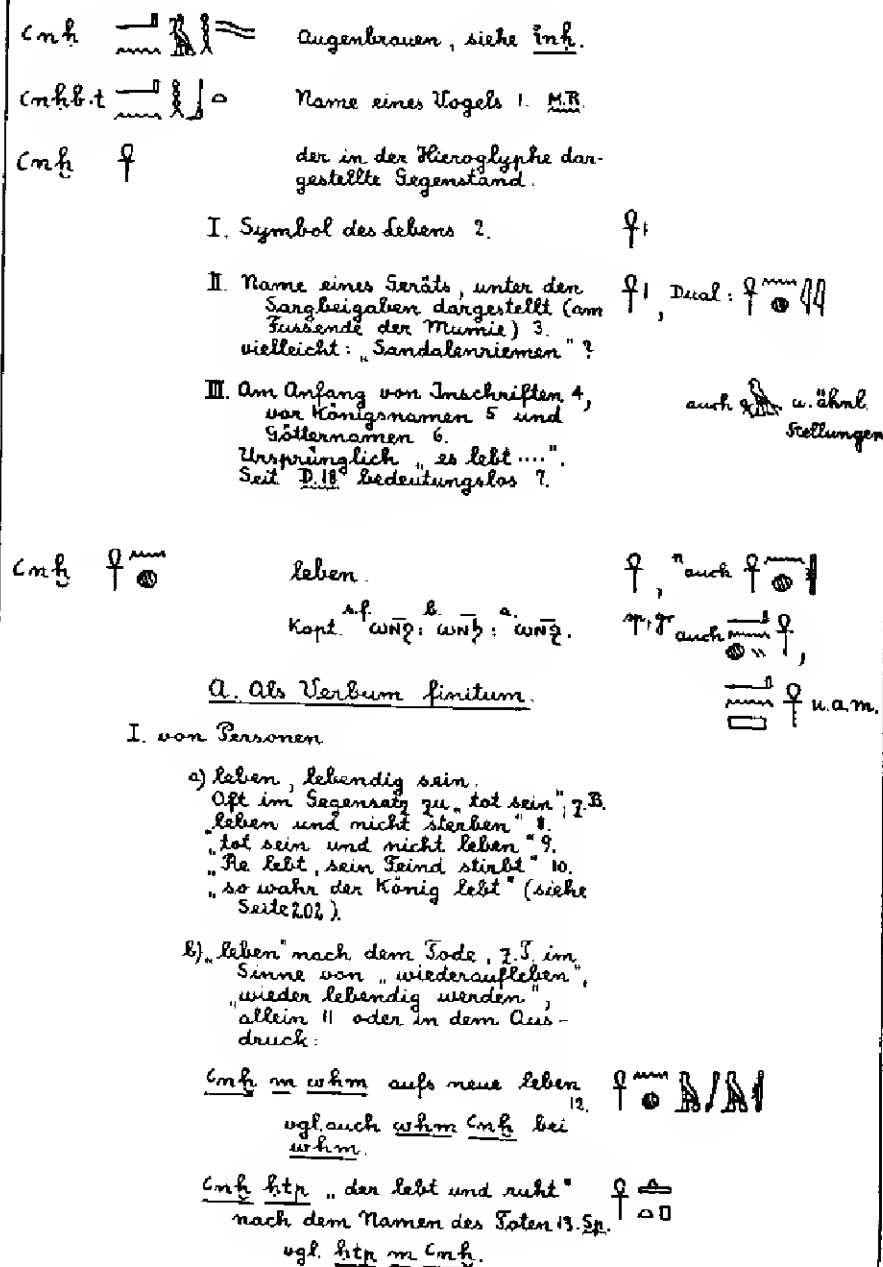 ꜥnḥ 𓂝𓈖𓅓𓎛 Augenbrauen, siehe i͗nḥ.
ꜥnḥb.t 𓂝𓈖𓎛𓃀𓏏 Name eines Vogels 1. M.R.
ꜥnḫ 𓋹 der in der Hieroglyphe dar-
gestellte Gegenstand.
I. Symbol des Lebens 2. 𓋹𓏤
II. Name eines Geräts, unter den 𓋹𓏤, Dual: 𓋹𓈖𓐍𓇌
Sargbeigaben dargestellt (am
Fussende der Mumie) 3.
vielleicht: „Sandalenriemen"?
III. Am Anfang von Inschriften 4, auch u. ähnl.
vor Königsnamen 5 und Stellungen
Götternamen 6.
Ursprünglich „es lebt....".
Seit D.18 bedeutungslos 7.
ꜥnḫ 𓋹𓈖𓐍 leben. 𓋹, n auch 𓋹𓈖𓐍𓏛
Kopt. s.f. ⲱⲛ̅ϩ: b. ⲱⲛϧ: a. ⲱⲛ̅ϩ̱. sp, gr auch 𓂝𓈖𓐍𓏭𓋹,
A. Als Verbum finitum. 𓂝𓈖𓈙𓋹 u.a.m.
I. von Personen
a) leben, lebendig sein.
Oft im Gegensatz zu „tot sein", z.B.
„leben und nicht sterben" 8.
„tot sein und nicht leben" 9.
„Re lebt, sein Feind stirbt" 10.
„so wahr der König lebt" (siehe
Seite 202).
b) „leben" nach dem Tode, z.T. im
Sinne von „wiederaufleben",
„wieder lebendig werden",
allein 11 oder in dem Aus-
druck:
ꜥnḫ m whm aufs neue leben 12. 𓋹𓈖𓐍𓅓𓄙𓅓𓏛
vgl. auch whm ꜥnḫ bei
whm.
ꜥnḫ ḥtp „der lebt und ruht" 𓋹𓊵𓏏𓊪
nach dem Namen des Toten 13. Sp.
vgl. ḥtp m ꜥnḫ.